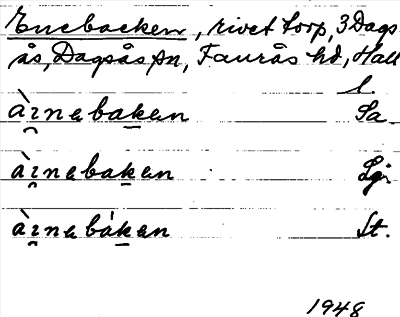 Enebacken, rivet torp, 3 Dags
ås, Dagsås sn, Faurås hd, Hall
l.
àı̯nebaken Sa.
àı̯nebaken Lgr
àı̯nebáken St.
1948